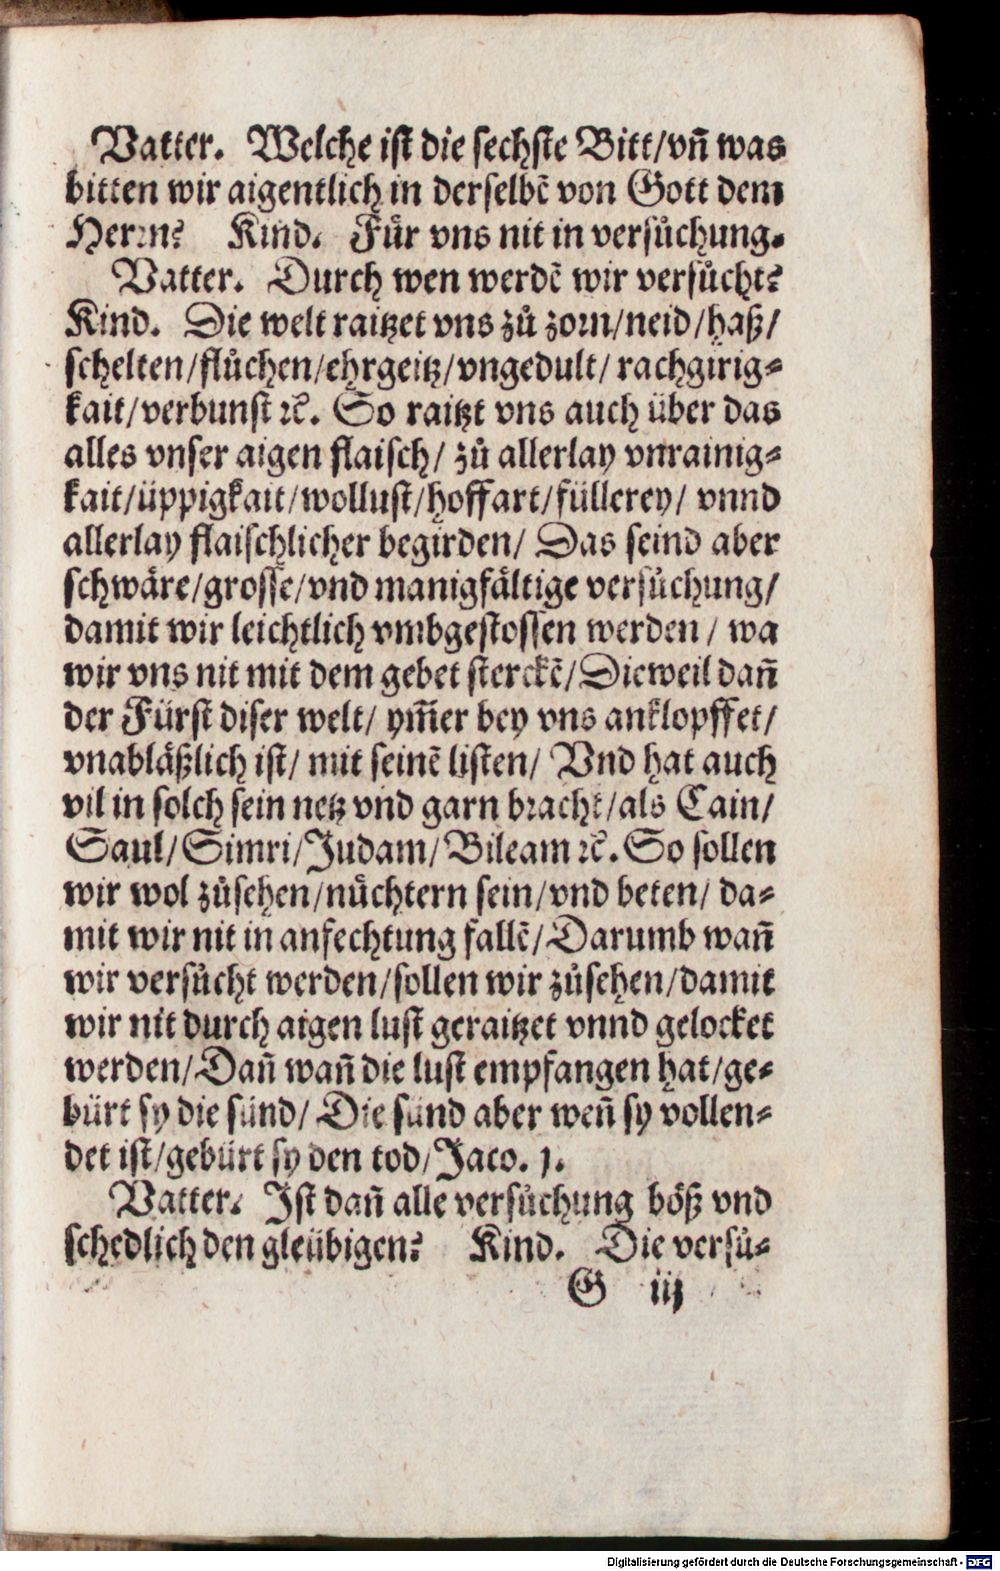 Vatter. Welche ist die sechste Bitt/vñ was
bitten wir aigentlich in derselbẽ von Gott dem
Herꝛn? Kind. Fuͤr vns nit in versuͦchung.
Vatter. Durch wen werdẽ wir versuͦcht?
Kind. Die welt raitzet vns zuͦ zoꝛn/neid/haß/
schelten/fluͦchen/ehrgeitz/vngedult/ rachgirig⸗
kait/verbunst ꝛc̃. So raitzt vns auch über das
alles vnser aigen flaisch/ zuͦ allerlay vnrainig⸗
kait/üppigkait/wollust/hoffart/füllerey/ vnnd
allerlay flaischlicher begirden/ Das seind aber
schwaͤre/grosse/vnd manigfaͤltige versuͦchung/
damit wir leichtlich vmbgestossen werden / wa
wir vns nit mit dem gebet sterckẽ/Dieweil dañ
der Fürst diser welt/ ym̃er bey vns anklopffet/
vnablaͤßlich ist/ mit seinẽ listen/ Vnd hat auch
vil in solch sein netz vnd garn bꝛacht/als Cain/
Saul/Simri/Judam/Bileam ꝛc̃. So sollen
wir wol zuͦsehen/nuͤchtern sein/vnd beten/ da⸗
mit wir nit in anfechtung fallẽ/Darumb wañ
wir versuͦcht werden/sollen wir zuͦsehen/damit
wir nit durch aigen lust geraitzet vnnd gelocket
werden/Dañ wañ die lust empfangen hat/ge⸗
bürt sy die sünd/ Die sünd aber weñ sy vollen⸗
det ist/gebürt sy den tod/Jaco. j.
Vatter. Ist dañ alle versuͦchung boͤß vnd
schedlich den gleübigen? Kind. Die versuͦ⸗
G iij
Digitalisierung gefördert durch die Deutsche Forschungsgemeinschaft - DFG